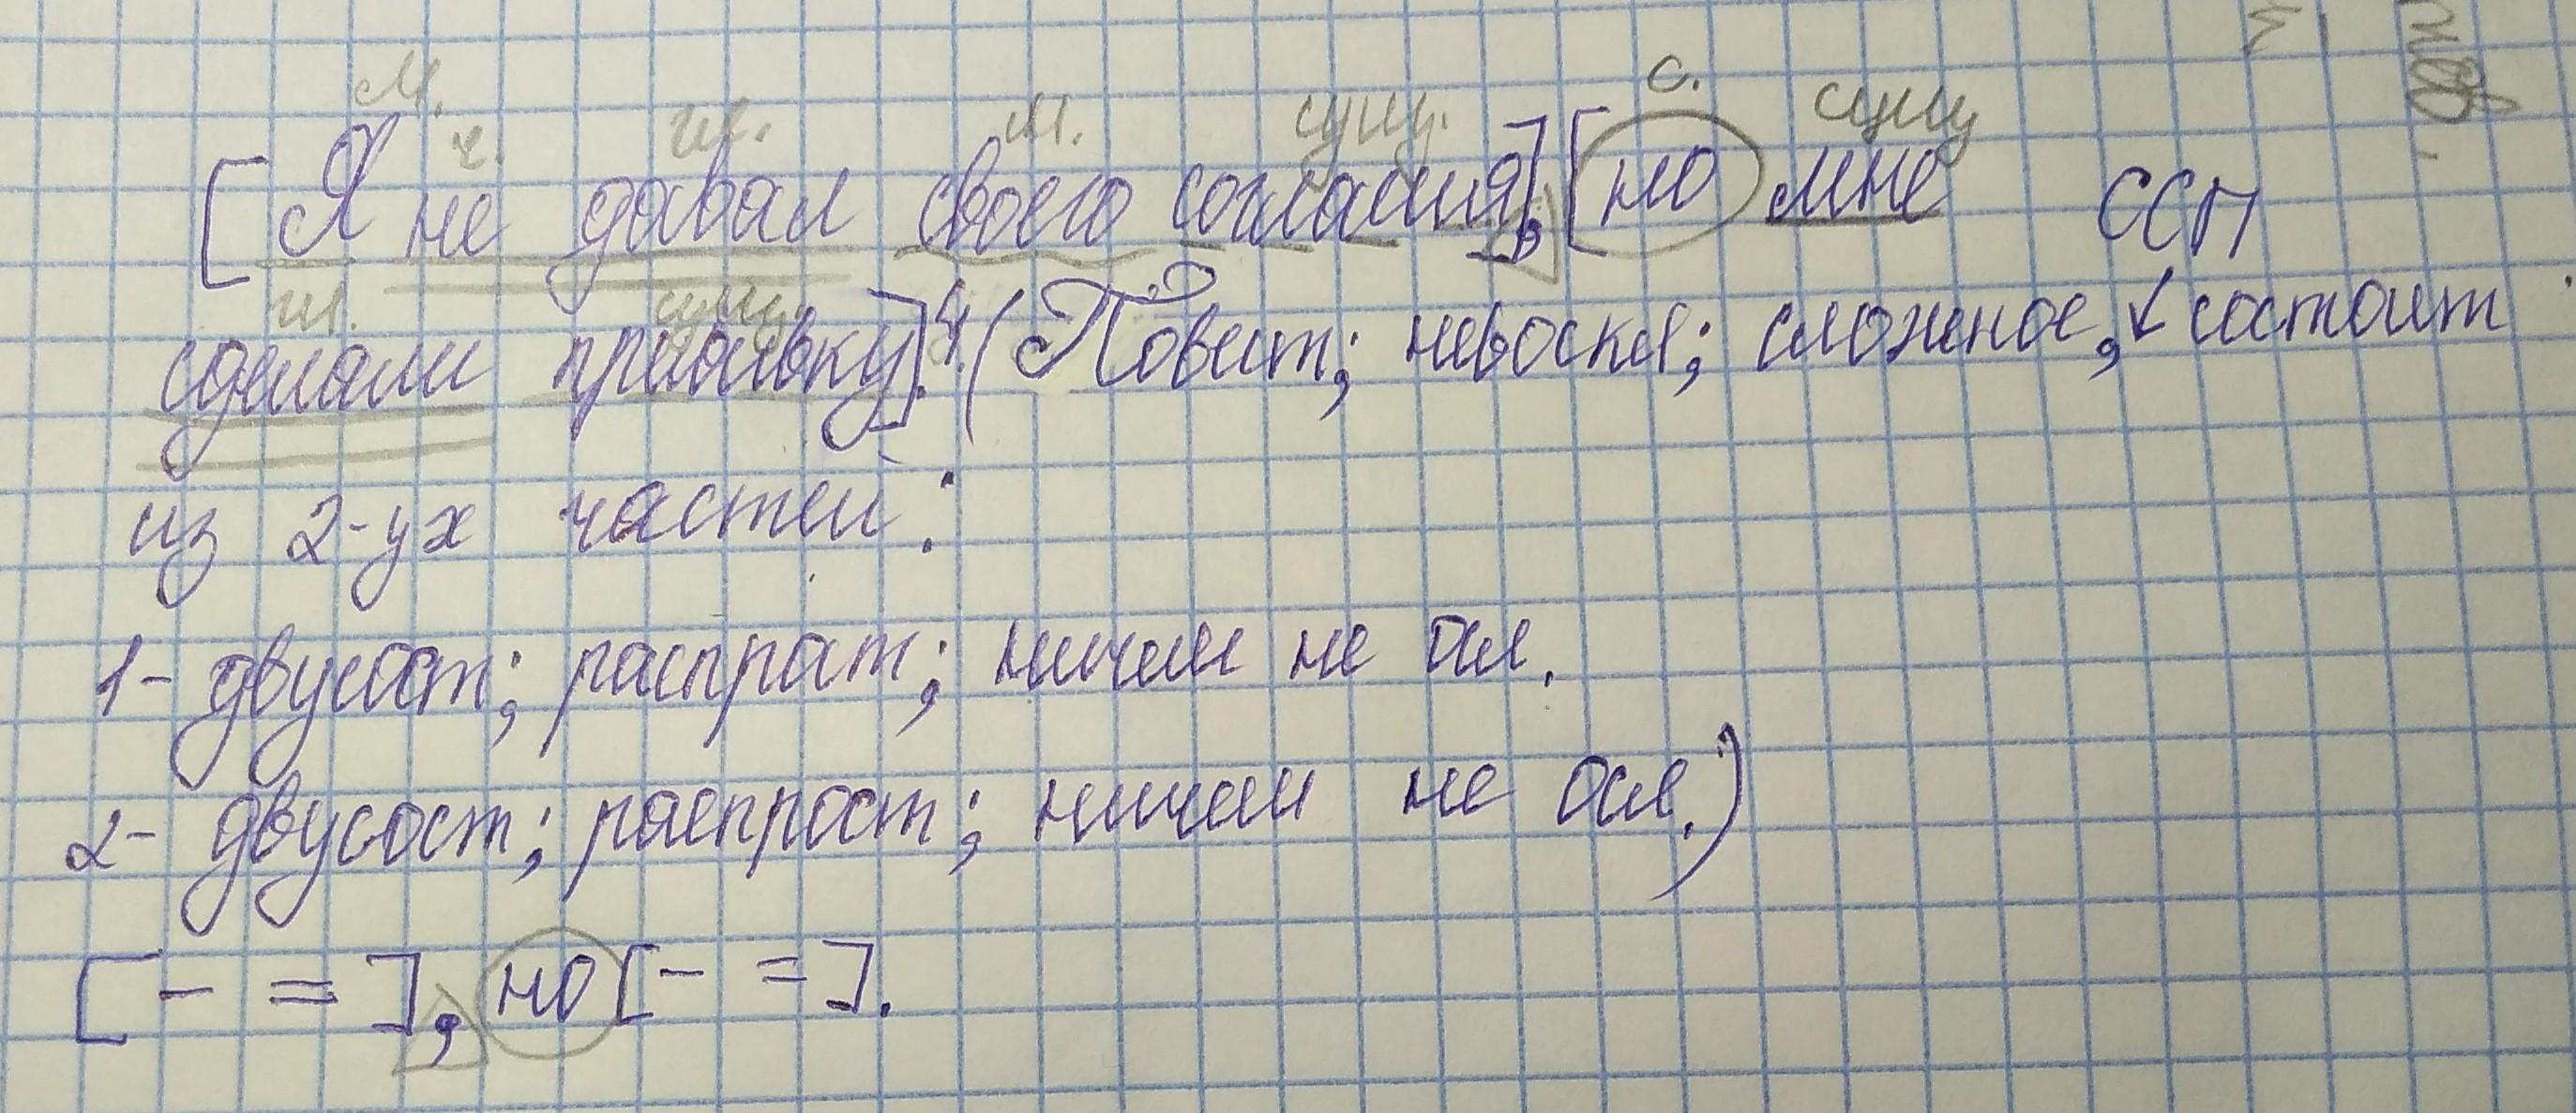 м. ч. гл. м. сущ. с. сущ
[Я не давал своего согласия], [но мне ССП
гл. сущ.
сделали прививку].⁴ (Повест; невоскл; сложное, состоит
из 2-ух частей:
1- двусост; распрост; ничем не осл.
2- двусост; распрост; ничем не осл.)
[- =], но [- =].